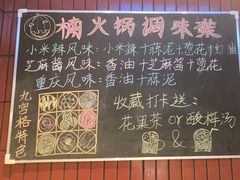 楠火锅调味碟
小米辣风味：小米辣十蒜泥十葱花十蚝油
芝麻酱风味：香油十芝麻酱十葱花
重庆风味：香油十蒜泥
九宫格特色
收藏打卡送：
花果茶 or 酸梅汤
&